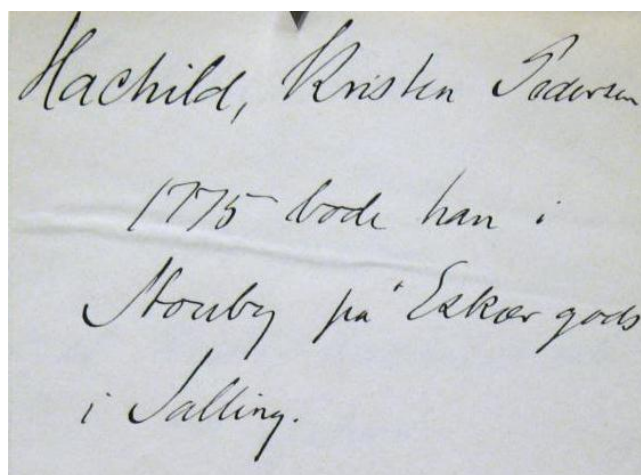 Hachild, Kristen Pedersen
1775 boede han i
Stouby på Eskær gods
i Salling.